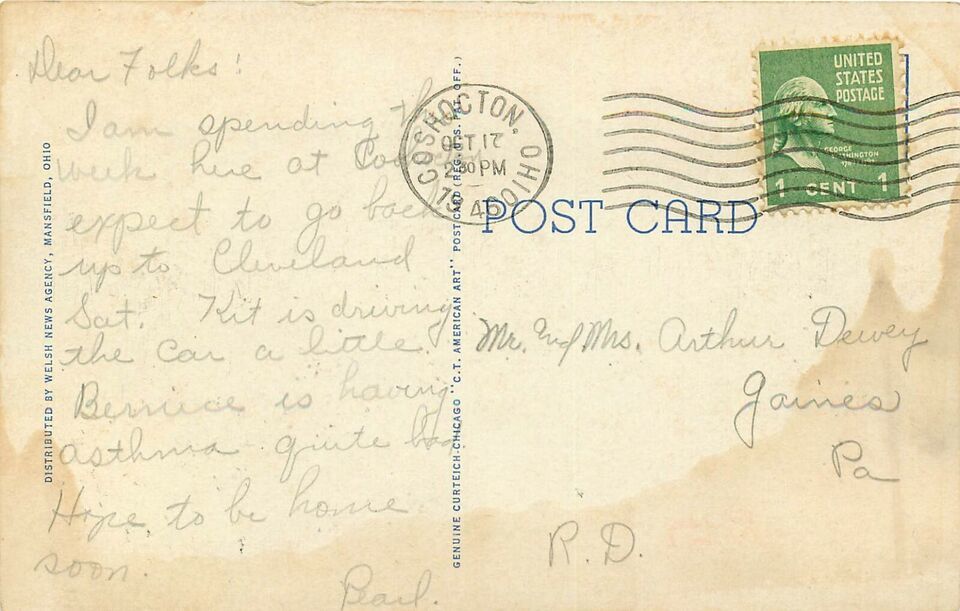 Dear Folks!
I am spending the
week here at
expect to go back
up to Cleveland
Sat. Kit is driving
the car a little
Bernice is having
asthma quite bad
Hope to be home
soon.
Pearl.
DISTRIBUTED BY WELSH NEWS AGENCY, MANSFIELD, OHIO
GENUINE CURTEICH-CHICAGO "C.T. AMERICAN ART" POST CARD (REG. U.S. PAT. OFF.)
COSHOCTON, OHIO
OCT 17
2 30 PM
1946
UNITED
STATES
POSTAGE
GEORGE
WASHINGTON
1 CENT 1
POST CARD
Mr. and Mrs. Arthur Dewey
Gaines
Pa
R.D.